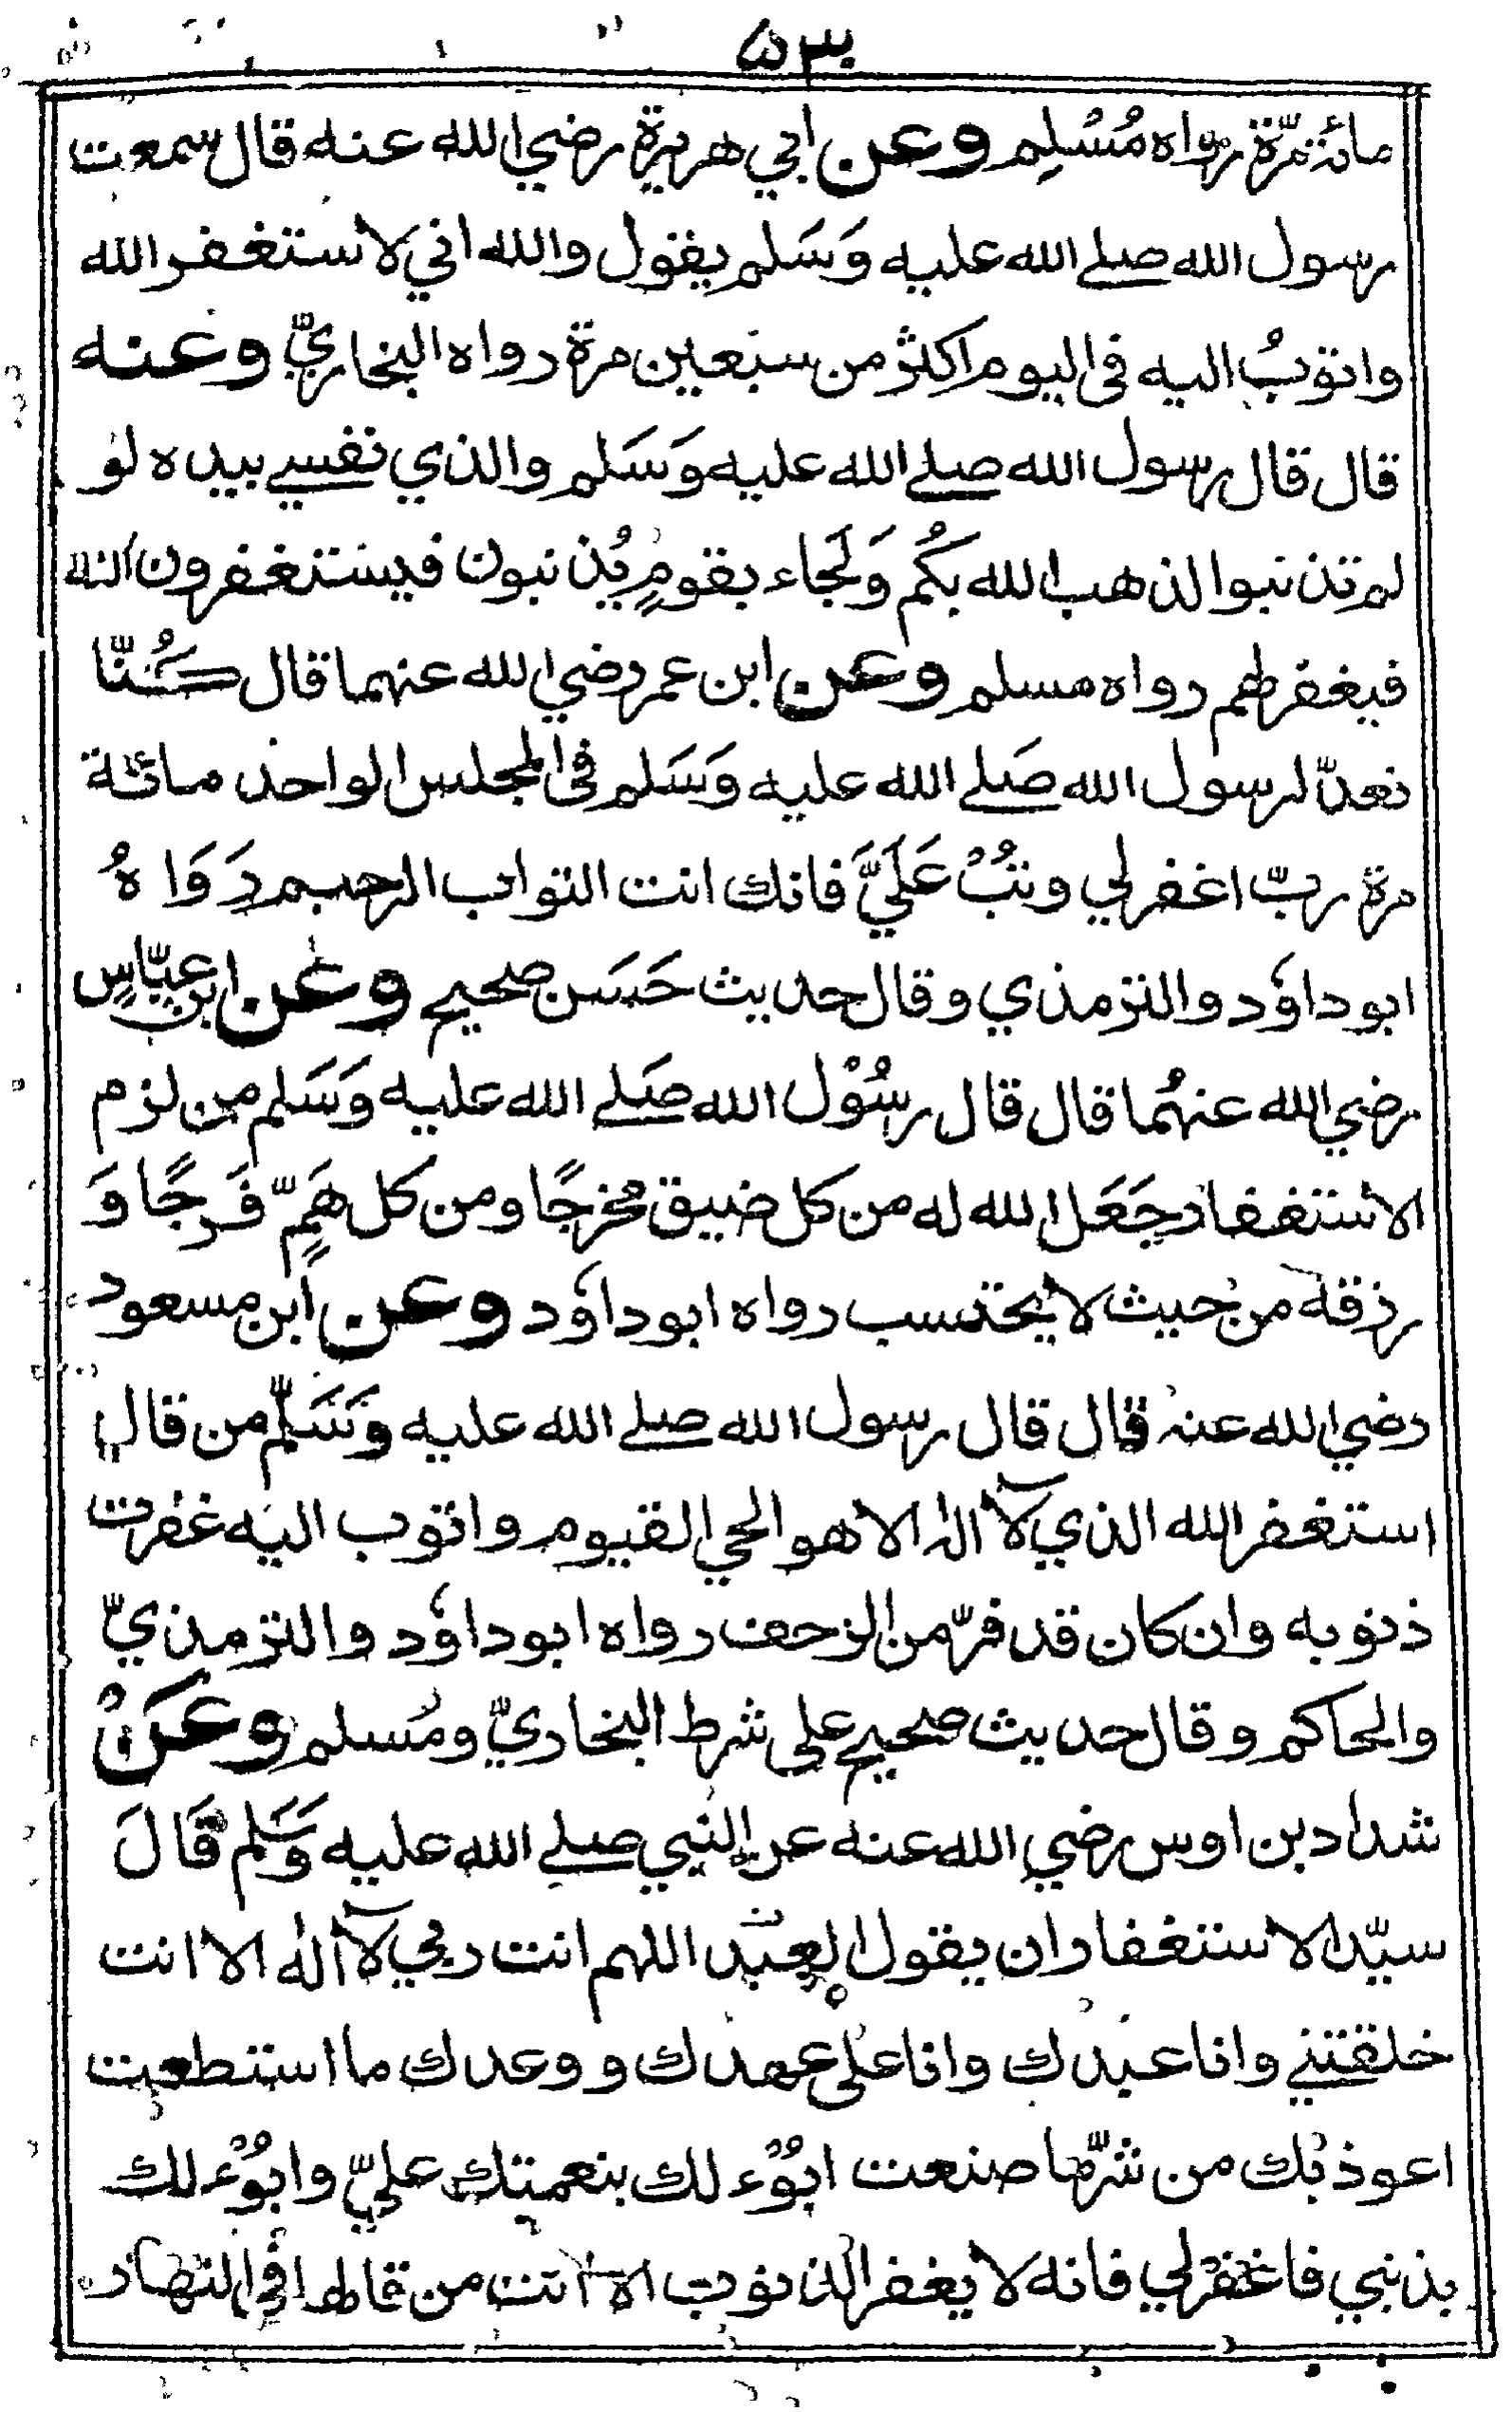 ۵۳۰
مائة مرّة رواه مُسْلِم وعن ابي هريرة رضي الله عنه قال سمعت
رسول الله صلے الله عليه وَسَلم يقول والله اني لاستغفر الله
واتوبُ اليه فى اليوم اكثر من سبعين مرة رواه البخاريّ وعنه
قال قال رسول الله صلے الله عليه وَسَلم والذي نفسے بيده لو
لم تذنبوا لذهب الله بكُم وَلَجاء بقومٍ يُذنبون فيستغفرون الله
فيغفر لهم رواه مسلم وعن ابن عمر رضي الله عنهما قال كُنّا
نعدّ لرسول الله صَلے الله عليه وَسَلم فى المجلس الواحد مائة
مرة ربّ اغفرلي وتُبْ عَلَيَّ فانك انت التواب الرحيم رَوَاهُ
ابو داؤد والترمذي وقال حديث حَسَن صحيح وعن ابن عبّاسٍ
رضي الله عنهُما قال قال رسُوْل الله صَلے الله عليه وَسَلم من لزم
الاستغفار جَعَل الله له من كل ضيق مخرجًا ومن كل هَمٍّ فَرجًا وَ
رزقه من حيث لا يحتسب رواه ابو داؤد وعن ابن مسعود
رضي الله عنه قال قال رسول الله صلے الله عليه وَسَلّم من قال
استغفر الله الذي لآ اله الا هو الحي القيوم واتوب اليه غفرت
ذنوبه وان كان قد فرّ من الزحف رواه ابو داؤد والترمذيّ
والحاكم وقال حديث صحيح على شرط البخاريّ ومُسلم وعَنْ
شداد بن اوس رضي الله عنه عن النبي صلے الله عليه وَسَلم قَالَ
سيّد الاستغفار ان يقول العبد اللهم انت ربي لآ اله الا انت
خلقتني وانا عبدك وانا على عهدك ووعدك ما استطعت
اعوذ بك من شرّ ما صنعت ابُوْء لك بنعمتك عليّ وابُوْء لك
بذنبي فاغفرلي فانه لا يغفر الذنوب الا انت من قالها فى النهار